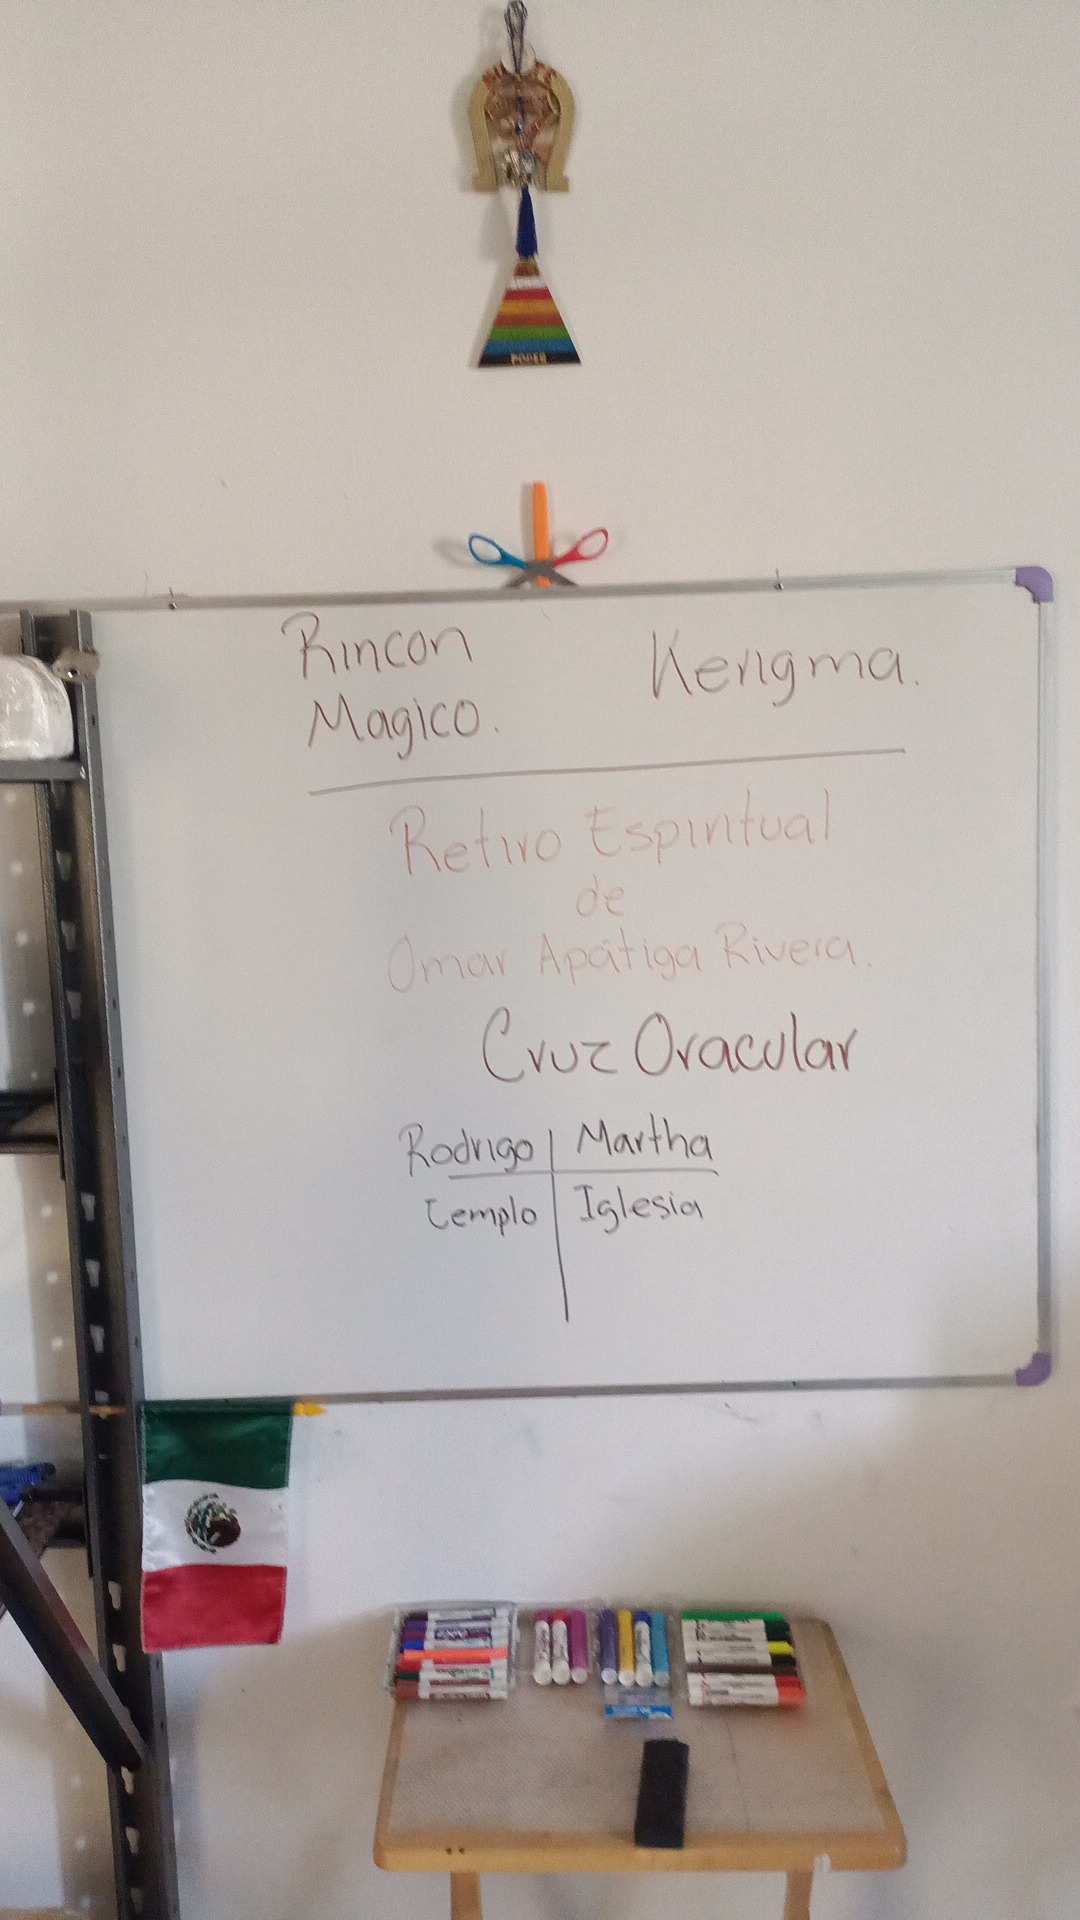 PODER
Rincon
Magico.
Kerigma.
Retiro Espiritual
de
Omar Apátiga Rivera.
Cruz Oracular
Rodrigo Martha
Templo Iglesia